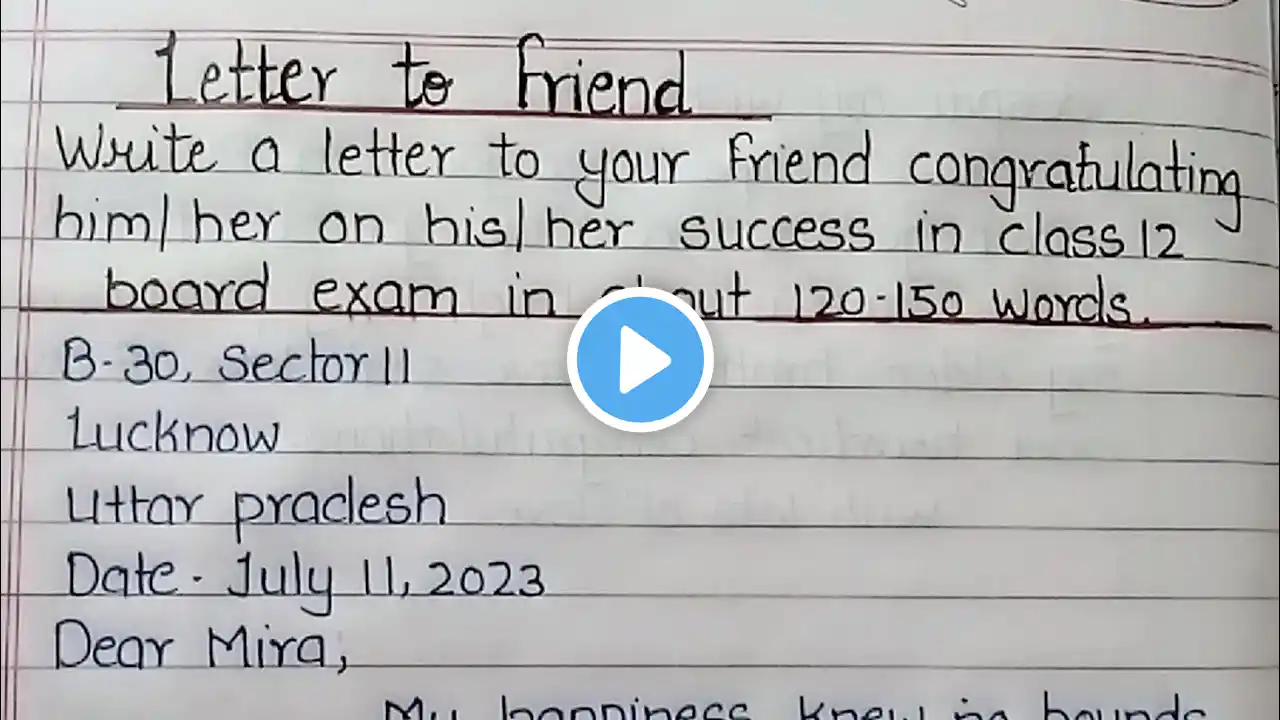 Letter to Friend
Write a letter to your friend congratulating
him/her on his/her success in class 12
board exam in about 120-150 words.
B-30, Sector 11
Lucknow
Uttar pradesh
Date - July 11, 2023
Dear Mira,
My happiness knew no bounds